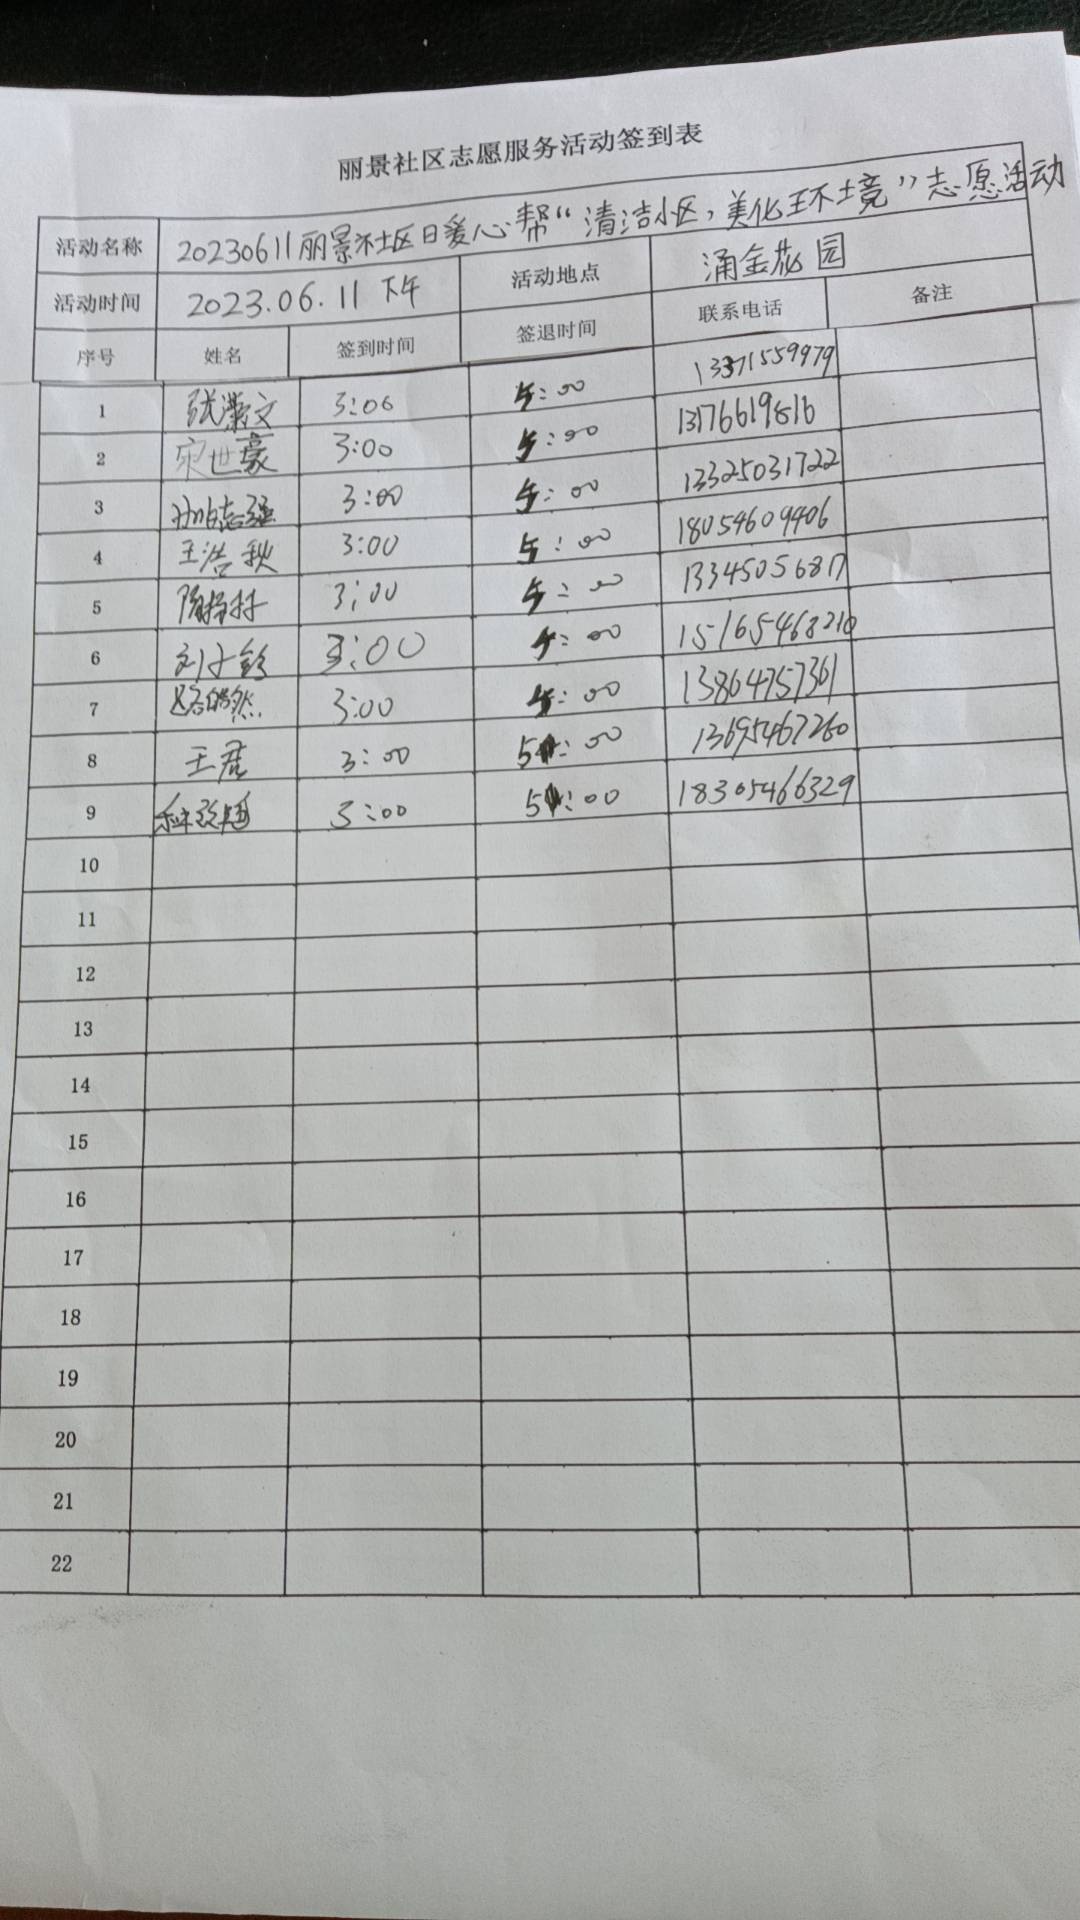 丽景社区志愿服务活动签到表
活动名称 20230611丽景社区日爱心帮“清洁小区，美化环境”志愿活动
活动时间 2023.06.11 下午 活动地点 涌金花园
序号 姓名 签到时间 签退时间 联系电话 备注
1 张潇文 3:00 5:00 13371559979
2 宋世豪 3:00 5:00 13176619816
3 3:00 5:00 13325031722
4 王浩秋 3:00 5:00 18054609406
5 3:00 5:00 13345056817
6 3:00 5:00 15165468210
7 3:00 5:00 13864757361
8 王君 3:00 5:00 13695467260
9 3:00 5:00 18305466329
10
11
12
13
14
15
16
17
18
19
20
21
22